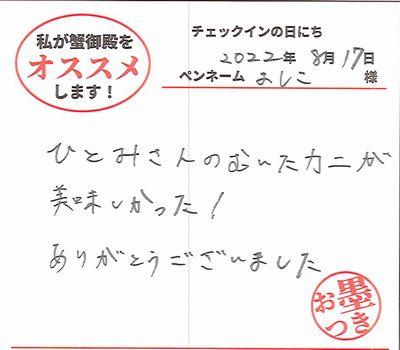 私が蟹御殿を
オススメ
します！
チェックインの日にち
2022年 8月 17日
ペンネーム よしこ 様
ひとみさんのむいたカニが
美味しかった！
ありがとうございました
お墨つき